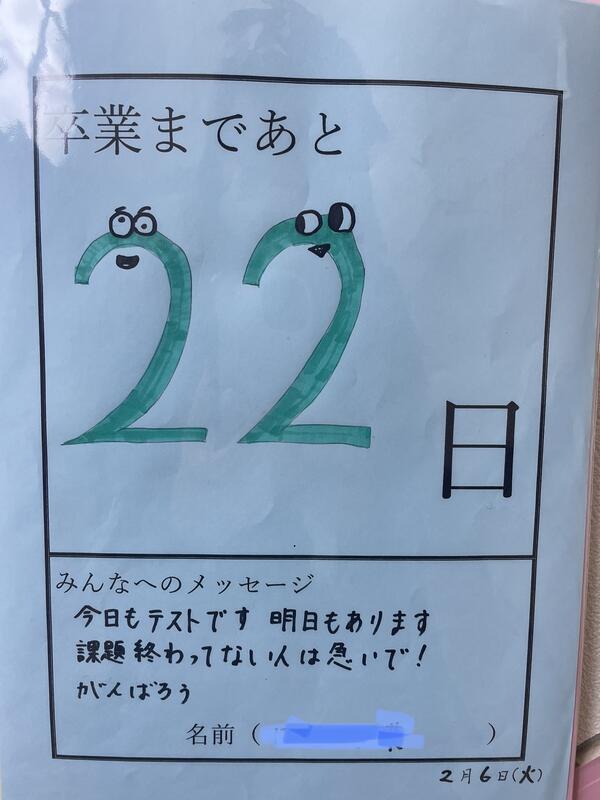 卒業まであと
22
日
みんなへのメッセージ
今日もテストです 明日もあります
課題終わってない人は急いで!
がんばろう
名前( )
2月6日(火)